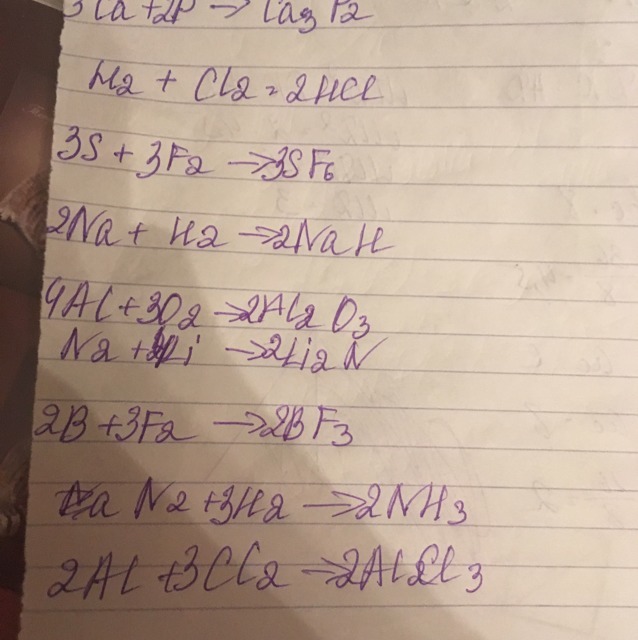 3Ca + 2P → Ca3P2
H2 + Cl2 = 2HCl
3S + 3F2 → 3SF6
2Na + H2 → 2NaH
4Al + 3O2 → 2Al2O3
N2 + Li → 2Li2N
2B + 3F2 → 2BF3
N2 + 3H2 → 2NH3
2Al + 3Cl2 → 2AlCl3